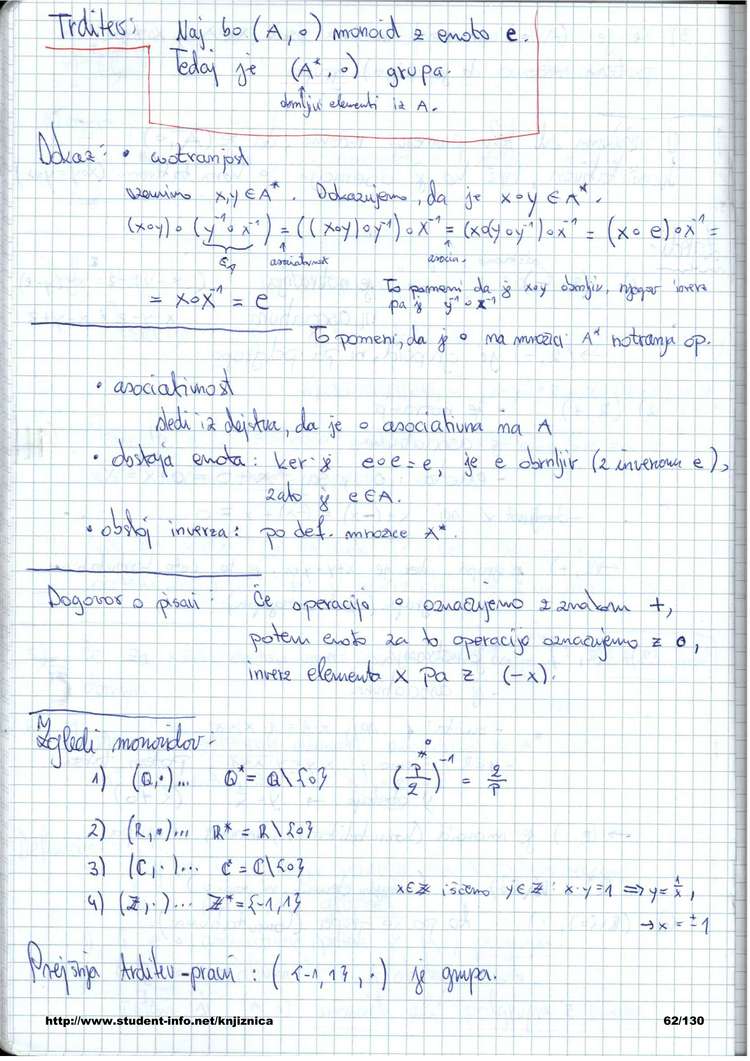 Trditev: Naj bo (A, ∘) monoid z enoto e.
Tedaj je (A*, ∘) grupa.
obrnljivi elementi iz A.
Dokaz: • notranjost
vzemimo x,y ∈ A*. Dokazujemo, da je x∘y ∈ A*.
(x∘y)∘(y⁻¹∘x⁻¹) = ((x∘y)∘y⁻¹)∘x⁻¹ = (x∘(y∘y⁻¹)∘x⁻¹ = (x∘e)∘x⁻¹ =
∈A asociativnost asocia.
= x∘x⁻¹ = e To pomeni da je x∘y obrnljiv, njegov inverz
pa je y⁻¹∘x⁻¹
To pomeni, da je ∘ na množici A* notranja op.
• asociativnost
sledi iz dejstva, da je ∘ asociativna na A
• obstaja enota: ker je e∘e=e, je e obrnljiv (z inverzom e),
zato je e∈A.
• obstoj inverza: po def. množice A*.
Dogovor o pisavi: Če operacijo ∘ označujemo z znakom +,
potem enoto za to operacijo označujemo z 0,
inverz elementa x pa z (-x).
Zgledi monoidov:
1) (ℚ,·)... ℚ*=ℚ\{0} (p/q)⁻¹ = q/p
2) (ℝ,·)... ℝ*=ℝ\{0}
3) (ℂ,·)... ℂ=ℂ\{0}
4) (ℤ,·)... ℤ*={-1,1} x∈ℤ iščemo y∈ℤ: x·y=1 ⟹ y=1/x,
→ x=±1
Prejšnja trditev pravi: ({-1,1},·) je grupa.
http://www.student-info.net/knjiznica 62/130